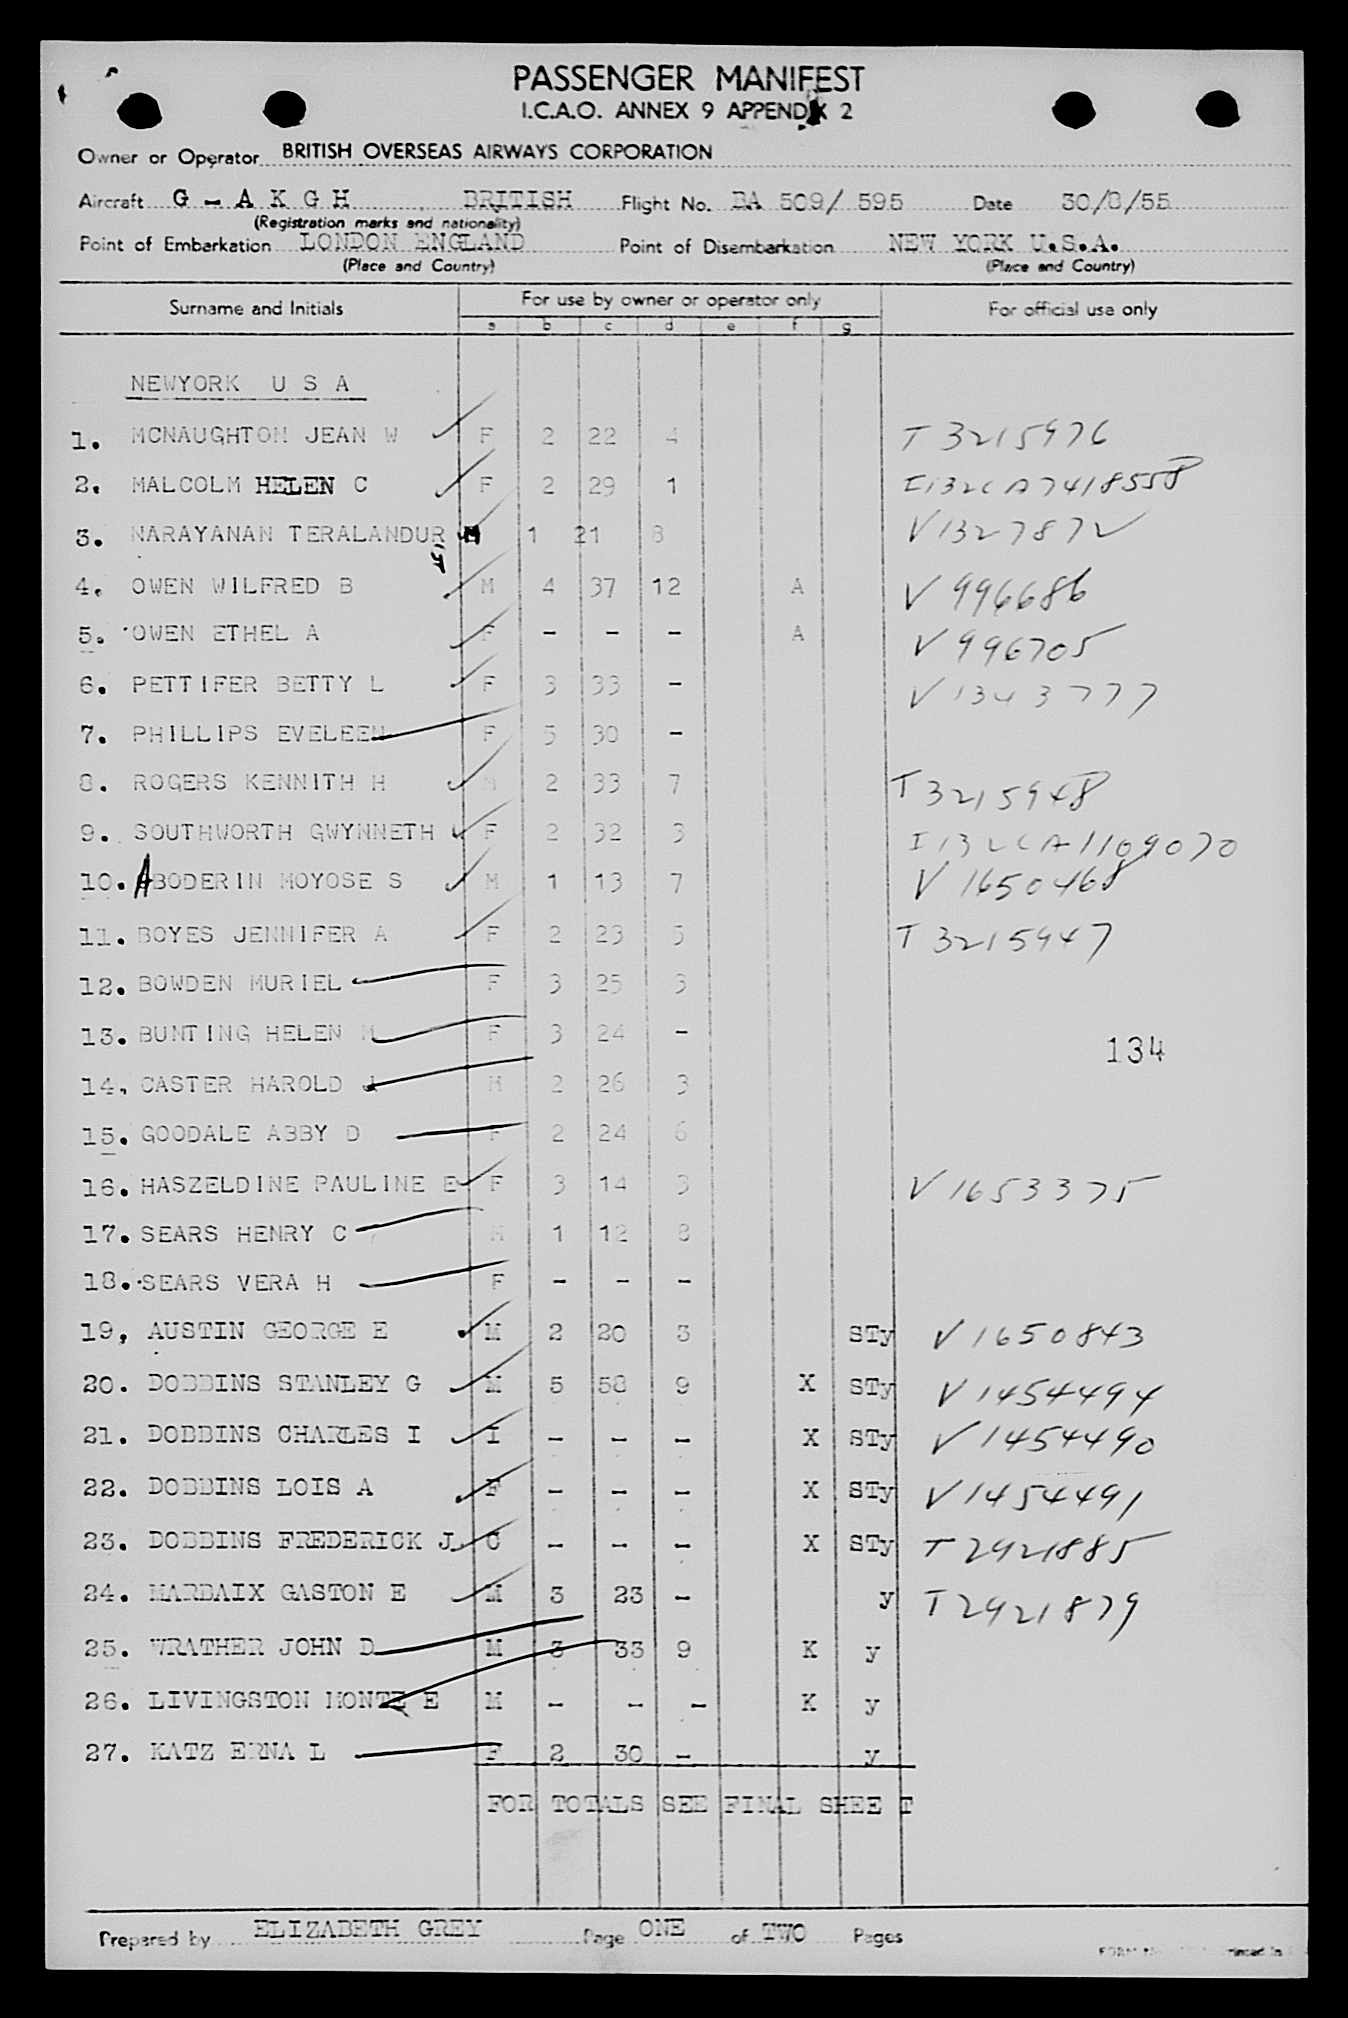 PASSENGER MANIFEST
I.C.A.O. ANNEX 9 APPENDIX 2
Owner or Operator BRITISH OVERSEAS AIRWAYS CORPORATION
Aircraft G - A K G H BRITISH Flight No. BA 509/ 595 Date 30/8/55
(Registration marks and nationality)
Point of Embarkation LONDON ENGLAND Point of Disembarkation NEW YORK U.S.A.
(Place and Country) (Place and Country)
Surname and Initials For use by owner or operator only For official use only
a b c d e f g
NEWYORK U S A
1. MCNAUGHTON JEAN W F 2 22 4 T 3215976
2. MALCOLM HELEN C F 2 29 1 I132CA7418558
3. NARAYANAN TERALANDUR M 1 21 8 V1327872
4. OWEN WILFRED B M 4 37 12 A V 996686
5. OWEN ETHEL A F - - - A V 996705
6. PETTIFER BETTY L F 3 33 - V 1343777
7. PHILLIPS EVELEEN F 5 30 -
8. ROGERS KENNITH H M 2 33 7 T3215948
9. SOUTHWORTH GWYNNETH F 2 32 3 I132CA1109070
10. ABODERIN MOYOSE S M 1 13 7 V 1650468
11. BOYES JENNIFER A F 2 23 5 T 3215947
12. BOWDEN MURIEL F 3 25 3
13. BUNTING HELEN M F 3 24 -
134
14. CASTER HAROLD J M 2 26 3
15. GOODALE ABBY D F 2 24 6
16. HASZELDINE PAULINE E F 3 14 3 V 1653375
17. SEARS HENRY C M 1 12 8
18. SEARS VERA H F - - -
19, AUSTIN GEORGE E M 2 20 3 STy V 1650843
20. DOBBINS STANLEY G M 5 58 9 X STy V 1454494
21. DOBBINS CHARLES I I - - - X STy V 1454490
22. DOBBINS LOIS A F - - - X STy V1454491
23. DOBBINS FREDERICK J C - - - X STy T 2921885
24. MARBAIX GASTON E M 3 23 - y T2921879
25. WRATHER JOHN D M 3 33 9 K y
26. LIVINGSTON MONTE E M - - - K y
27. KATZ ERNA L F 2 30 - y
FOR TOTALS SEE FINAL SHEE T
Prepared by ELIZABETH GREY Page ONE of TWO Pages